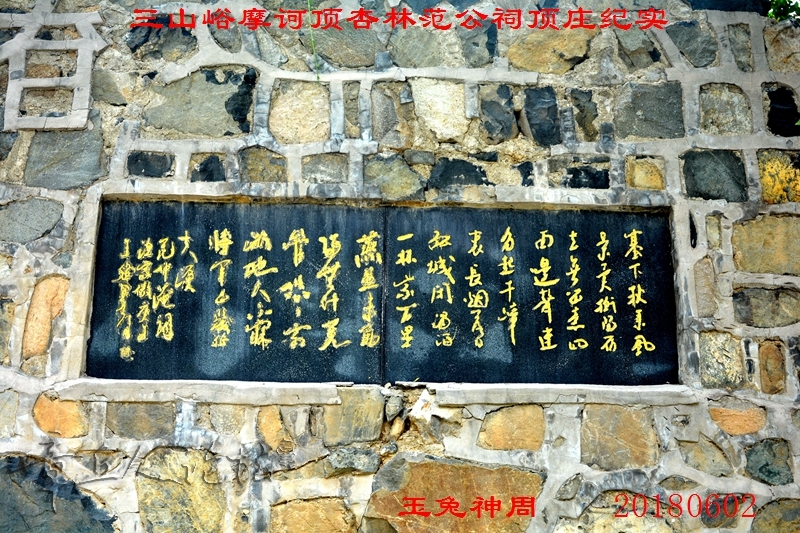 三山峪摩诃顶杏林范公祠顶庄纪实
塞下秋来风
景异衡阳雁
去无留意四
面边声连
角起千嶂
里长烟落日
孤城闭浊酒
一杯家万里
燕然未勒
归无计羌
管悠悠霜
满地人不寐
将军白发征
夫泪
范仲淹词
玉兔神周 20180602